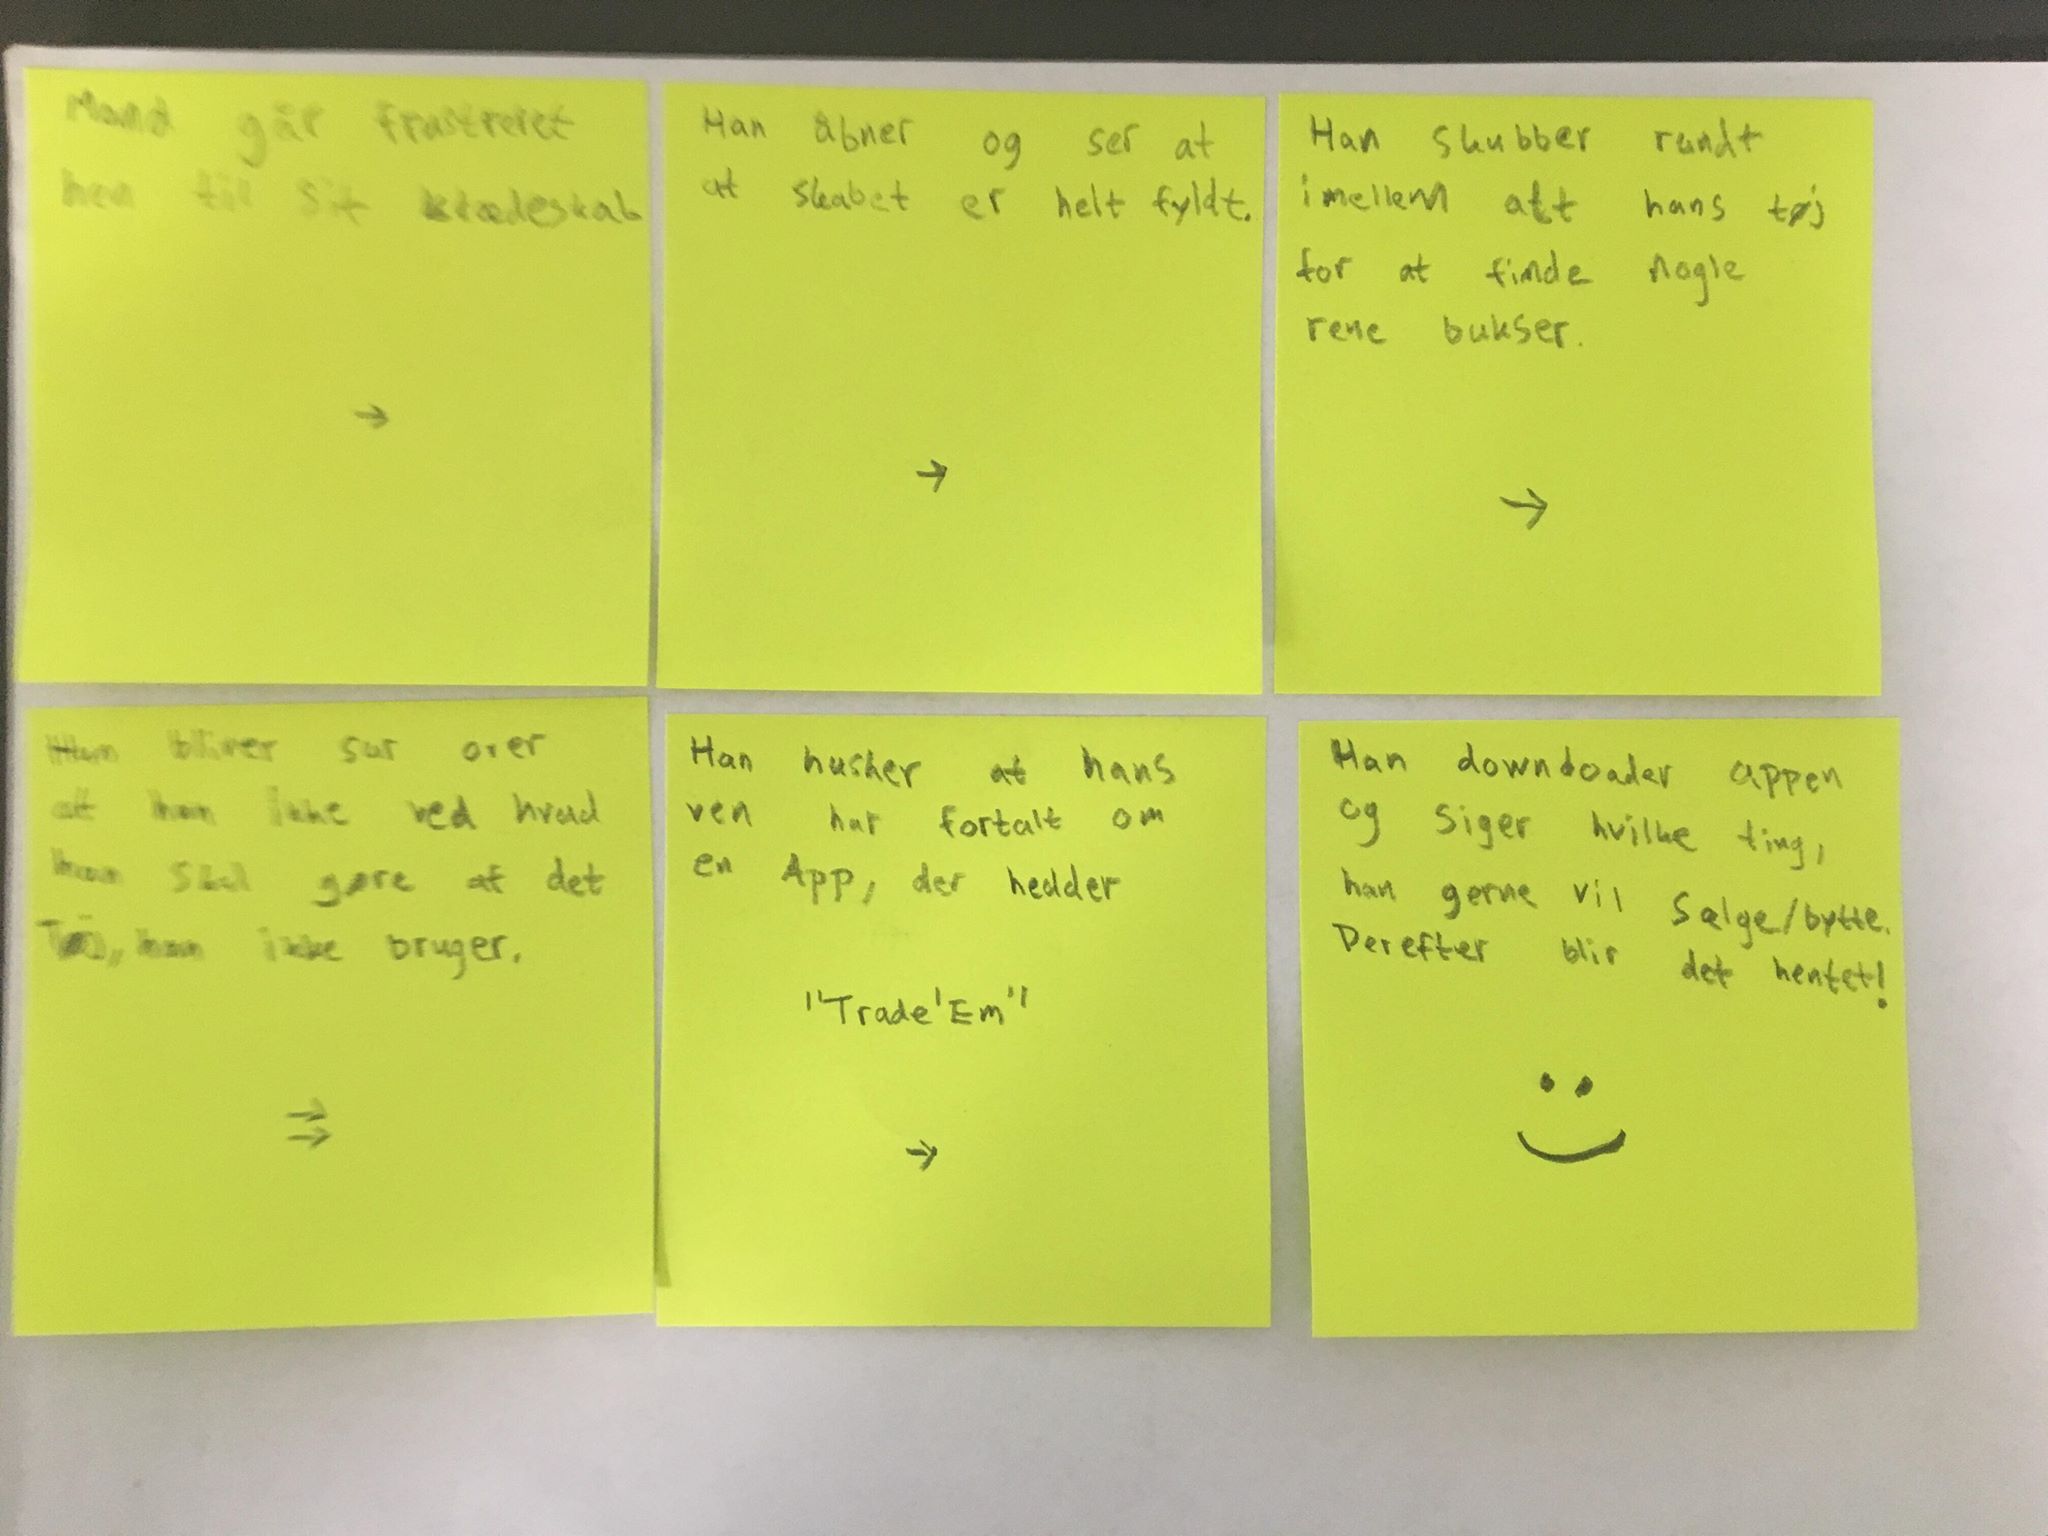 Mand går frustreret
hen til sit klædeskab
→
Han åbner og ser at
at skabet er helt fyldt.
→
Han skubber rundt
imellem alt hans tøj
for at finde nogle
rene bukser.
→
Han bliver sur over
at han ikke ved hvad
han skal gøre af det
Tøj, han ikke bruger.
→
→
Han husker at hans
ven har fortalt om
en App, der hedder
"Trade'Em"
→
Han downloader appen
og siger hvilke ting,
han gerne vil Sælge/bytte.
Derefter blir det hentet!